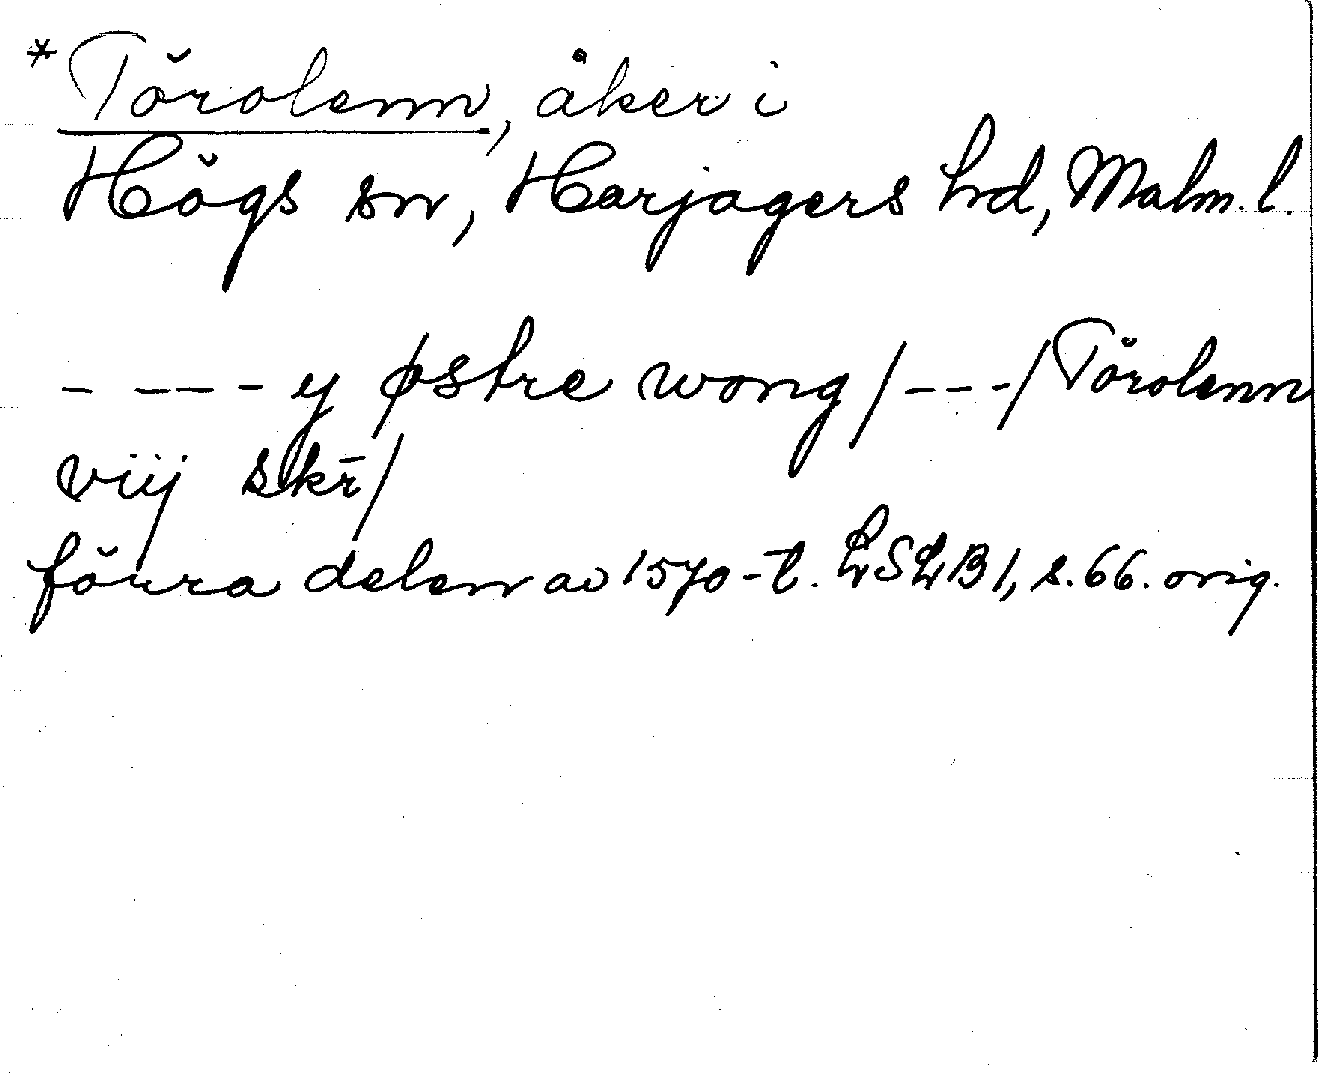 *Törolenn, åker i
Högs sn, Harjagers hd, Malm. l.
- --- - y østre wong/---/Törolenn
viij skr̄/
förra delen av 1570-t. LSLB 1, s. 66. orig.